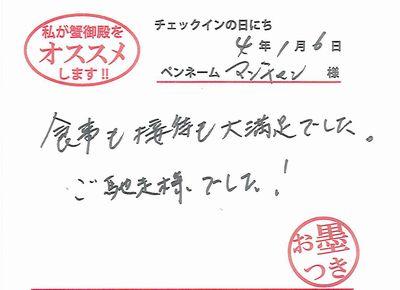 私が蟹御殿を
オススメ
します!!
チェックインの日にち
4年1月6日
ペンネーム マンチャン 様
食事も接待も大満足でした。
ご馳走様でした!
お墨
つき